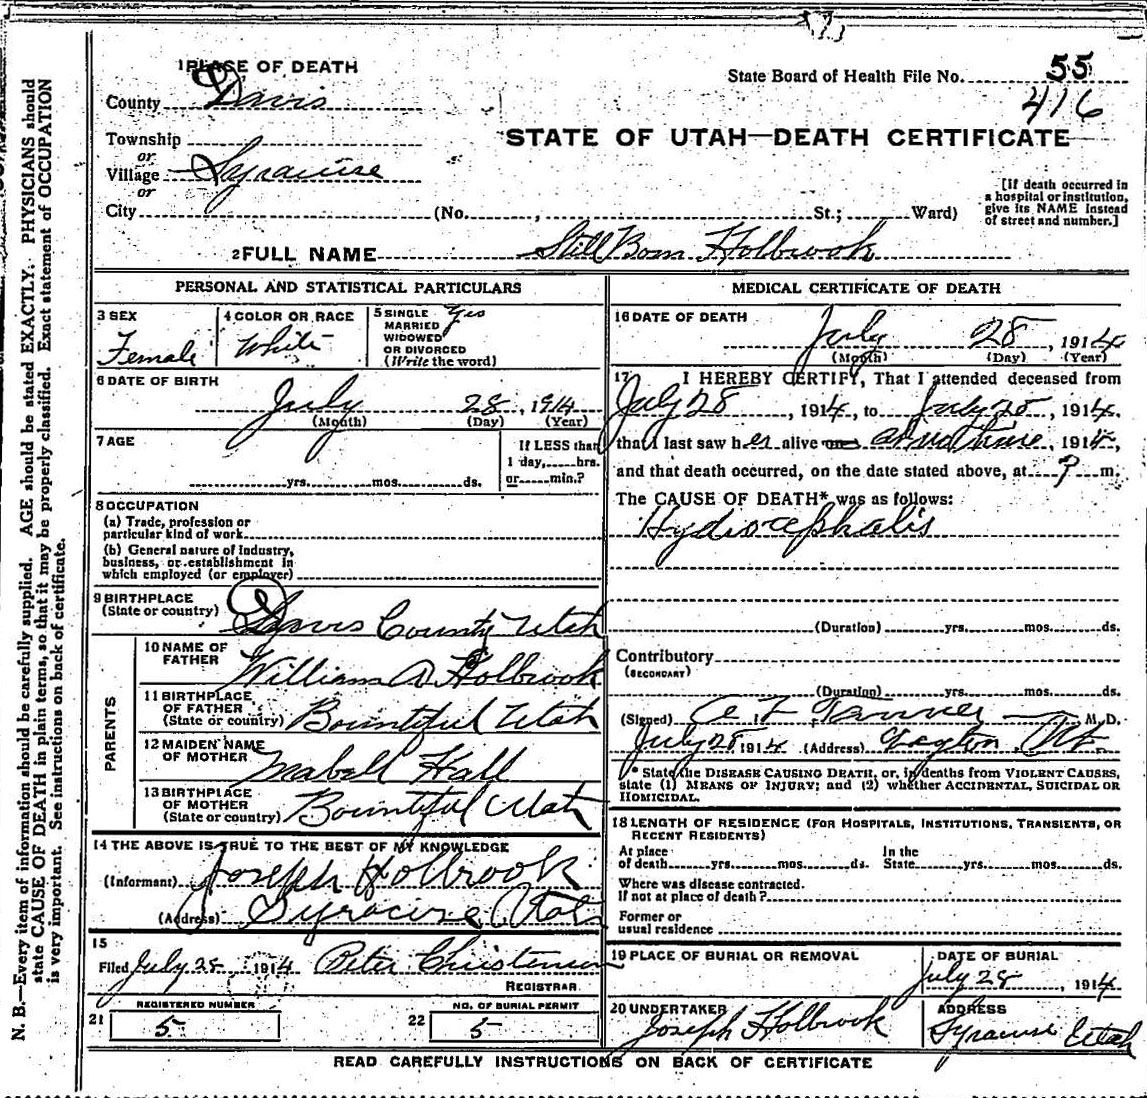 1 PLACE OF DEATH
County Davis
Township
or
Village Syracuse
or
City (No. , St.; Ward)
State Board of Health File No. 55
416
STATE OF UTAH—DEATH CERTIFICATE
[If death occurred in
a hospital or institution,
give its NAME instead
of street and number.]
2 FULL NAME Still Born Holbrook
PERSONAL AND STATISTICAL PARTICULARS
3 SEX
Female
4 COLOR OR RACE
White
5 SINGLE Yes
MARRIED
WIDOWED
OR DIVORCED
(Write the word)
6 DATE OF BIRTH
July 28, 1914
(Month) (Day) (Year)
7 AGE
yrs. mos. ds.
If LESS than
1 day, hrs.
or min.?
8 OCCUPATION
(a) Trade, profession or
particular kind of work
(b) General nature of Industry,
business, or establishment in
which employed (or employer)
9 BIRTHPLACE
(State or country) Davis County Utah
PARENTS
10 NAME OF
FATHER William A Holbrook
11 BIRTHPLACE
OF FATHER
(State or country) Bountiful Utah
12 MAIDEN NAME
OF MOTHER Mabell Hall
13 BIRTHPLACE
OF MOTHER
(State or country) Bountiful Utah
14 THE ABOVE IS TRUE TO THE BEST OF MY KNOWLEDGE
(Informant) Joseph Holbrook
(Address) Syracuse Utah
15
Filed July 28 1914 Peter Christensen
REGISTRAR
REGISTERED NUMBER
21 5
NO. OF BURIAL PERMIT
22 5
MEDICAL CERTIFICATE OF DEATH
16 DATE OF DEATH
July 28, 1914
(Month) (Day) (Year)
17 I HEREBY CERTIFY, That I attended deceased from
July 28, 1914, to July 28, 1914,
that I last saw her alive on at no time, 1914,
and that death occurred, on the date stated above, at ? m.
The CAUSE OF DEATH* was as follows:
Hydrocephalis
(Duration) yrs. mos. ds.
Contributory
(SECONDARY)
(Duration) yrs. mos. ds.
(Signed) Tanner M. D.
July 28 1914 (Address) Layton, Ut.
* State the DISEASE CAUSING DEATH, or, in deaths from VIOLENT CAUSES,
state (1) MEANS OF INJURY; and (2) whether ACCIDENTAL, SUICIDAL OR
HOMICIDAL.
18 LENGTH OF RESIDENCE (FOR HOSPITALS, INSTITUTIONS, TRANSIENTS, OR
RECENT RESIDENTS)
At place In the
of death yrs. mos. ds. State yrs. mos. ds.
Where was disease contracted.
If not at place of death?
Former or
usual residence
19 PLACE OF BURIAL OR REMOVAL
DATE OF BURIAL
July 28, 1914
20 UNDERTAKER
Joseph Holbrook
ADDRESS
Syracuse Utah
READ CAREFULLY INSTRUCTIONS ON BACK OF CERTIFICATE
N. B.—Every item of information should be carefully supplied. AGE should be stated EXACTLY. PHYSICIANS should
state CAUSE OF DEATH in plain terms, so that it may be properly classified. Exact statement of OCCUPATION
is very important. See instructions on back of certificate.